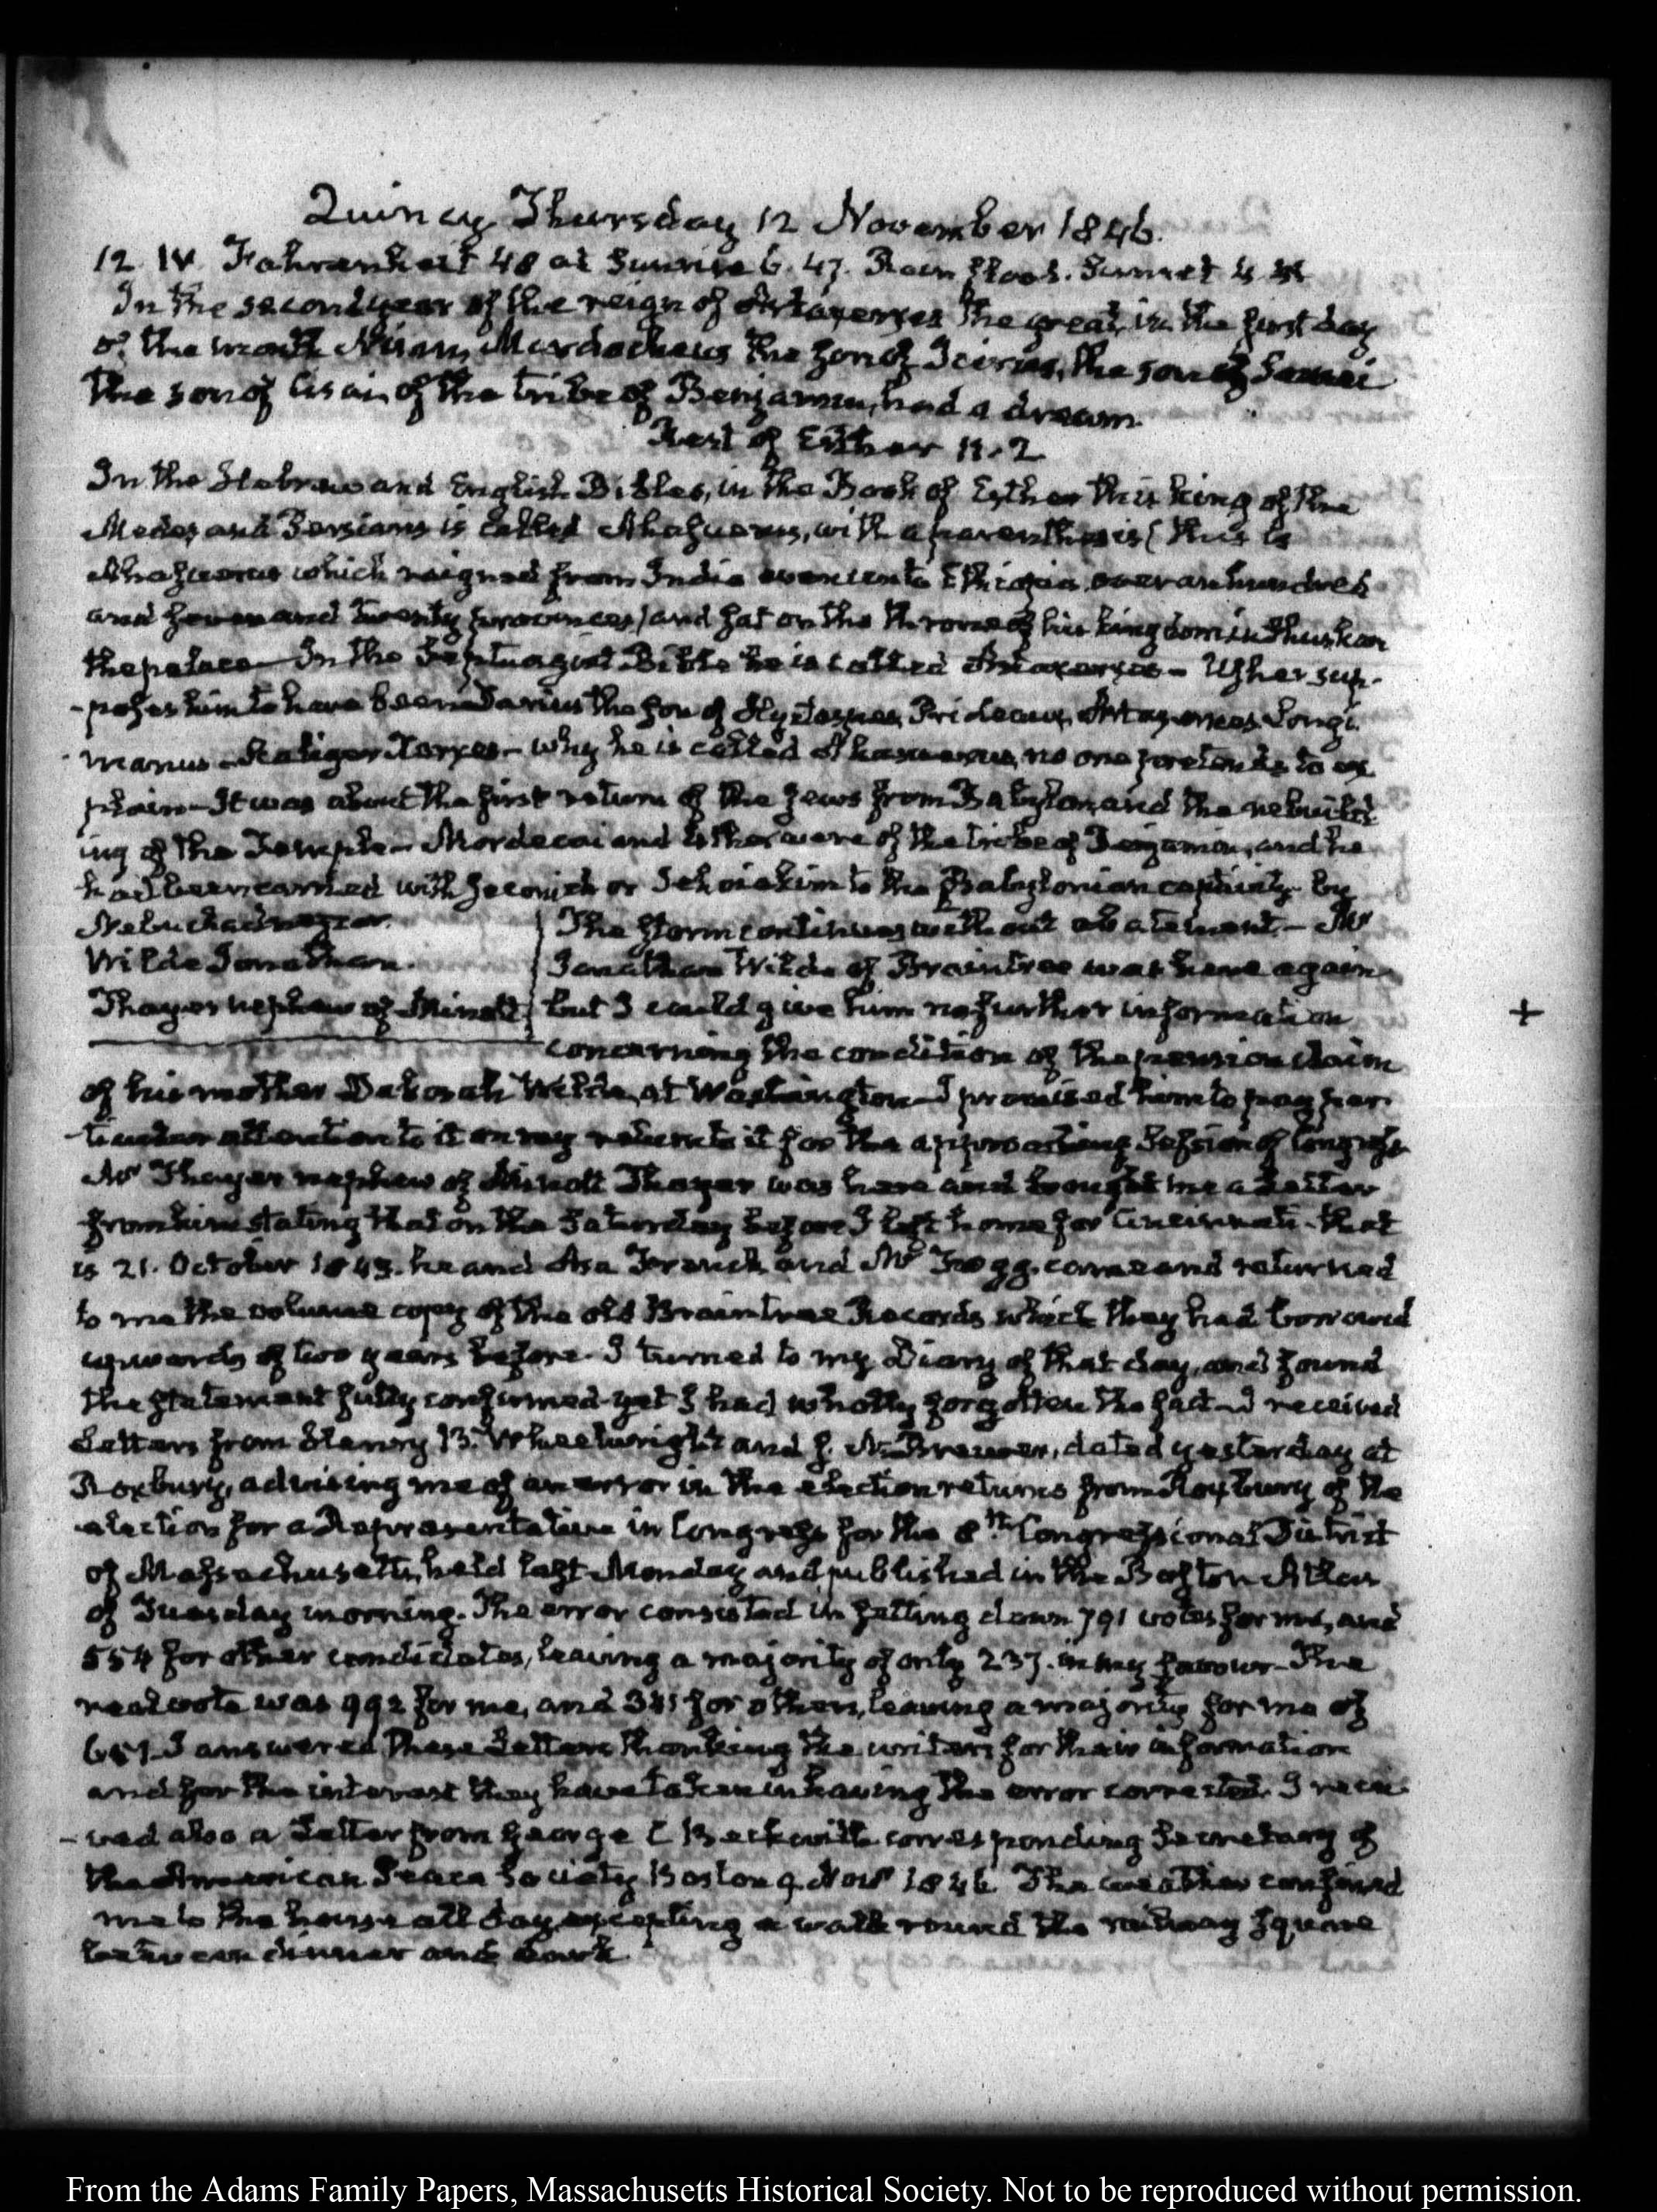 Quincy Thursday 12 November 1846.
12. IV. Fahrenheit 48 at Sunrise 6.47. Rain flood. Sunset 4
In the second year of the reign of Artaxerxes the great, in the first day
of the month Nisan, Mardocheus the son of Jairus, the son of Semei
the son of Cisai, of the tribe of Benjamin, had a dream.
Rest of Esther 11.2
In the Hebrew and English Bibles, in the Book of Esther this king of the
Medes and Persians is called Ahasuerus, with a parenthesis (this is
Ahasuerus which reigned from India even unto Ethiopia over an hundred
and seven and twenty provinces) and sat on the throne of his kingdom in Shushan
the palace— In the Septuagint Bible he is called Artaxerxes— Usher sup-
-poses him to have been Darius the son of Hystaspes, Prideaux, Artaxerxes Longi-
manus—Scaliger Xerxes— why he is called Ahasuerus, no one pretends to ex-
plain—It was about the first return of the Jews from Babylon and the rebuild-
ing of the Temple— Mordecai and Esther were of the tribe of Benjamin, and he
had been carried with Jeconiah or Jehoiakim to the Babylonian captivity by
Nebuchadnezzar.
Wilde Jonathan.
Thayer nephew of Minott
The storm continues without abatement.— Mr
Jonathan Wilde of Braintree was here again
but I could give him no further information
concerning the condition of the pension claim
of his mother Deborah Wilde, at Washington—I promised him to pay par-
-ticular attention to it on my return to it for the approaching Session of Congress
Mr Thayer nephew of Minott Thayer was here and brought me a Letter
from him stating that on the Saturday before I left home for Cincinnati—that
is 21. October 1843. he and Asa French and Mr Fogg, came and returned
to me the volume copy of the old Braintree Records which they had borrowed
upwards of two years before. I turned to my Diary of that day, and found
the statement fully confirmed—yet I had wholly forgotten the fact—I received
Letters from Henry B. Wheelwright and J. N. Brewer, dated yesterday at
Roxbury, advising me of an error in the election returns from Roxbury of the
election for a Representative in Congress for the 8th Congressional District
of Massachusetts, held last Monday and published in the Boston Atlas
of Tuesday morning. The error consisted in setting down 791 votes for me, and
554 for other candidates, leaving a majority of only 237. in my favour—The
real vote was 992 for me, and 341 for others, leaving a majority for me of
651. I answered these Letters thanking the writers for their information
and for the interest they have taken in having the error corrected. I recei-
-ved also a Letter from George C Beckwith corresponding Secretary of
the American Peace Society Boston 9. Novr 1846. The weather confined
me to the house all day, excepting a walk round the railway square
between dinner and dark
+
From the Adams Family Papers, Massachusetts Historical Society. Not to be reproduced without permission.